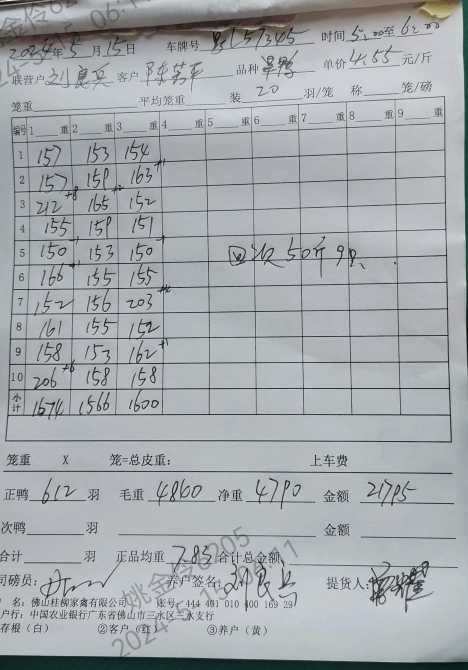 2024年5月15日 车牌号 时间5:00至6:00
联营户 刘良兵 客户 陈苦平 品种 单价4.55元/斤
笼重 平均笼重 装20羽/笼 称 笼/磅
编号 1 重 2 重 3 重 4 重 5 重 6 重 7 重 8 重 9 重
1 157 153 154
2 157 159 163 +1
3 212 +8 165 +2 152
4 155 159 151
5 150 153 150
6 166 155 155
7 152 156 203
8 161 155 152
9 158 153 162 +1
10 206 +6 158 158
小计 1674 1566 1600
回次50斤9只
笼重 X 笼=总皮重: 上车费
正鸭612羽 毛重4840 净重4790 金额21795
次鸭 羽 金额
合计 羽 正品均重7.83 合计总金额
司磅员: 养户签名:刘良兵 提货人:
名:佛山桂柳家禽有限公司 账号:444 401 010 400 169 29
户行:中国农业银行广东省佛山市三水区三水支行
存根(白) ②客户(红) ③养户(黄)
姚金伶6205
2024-5-15 06:11